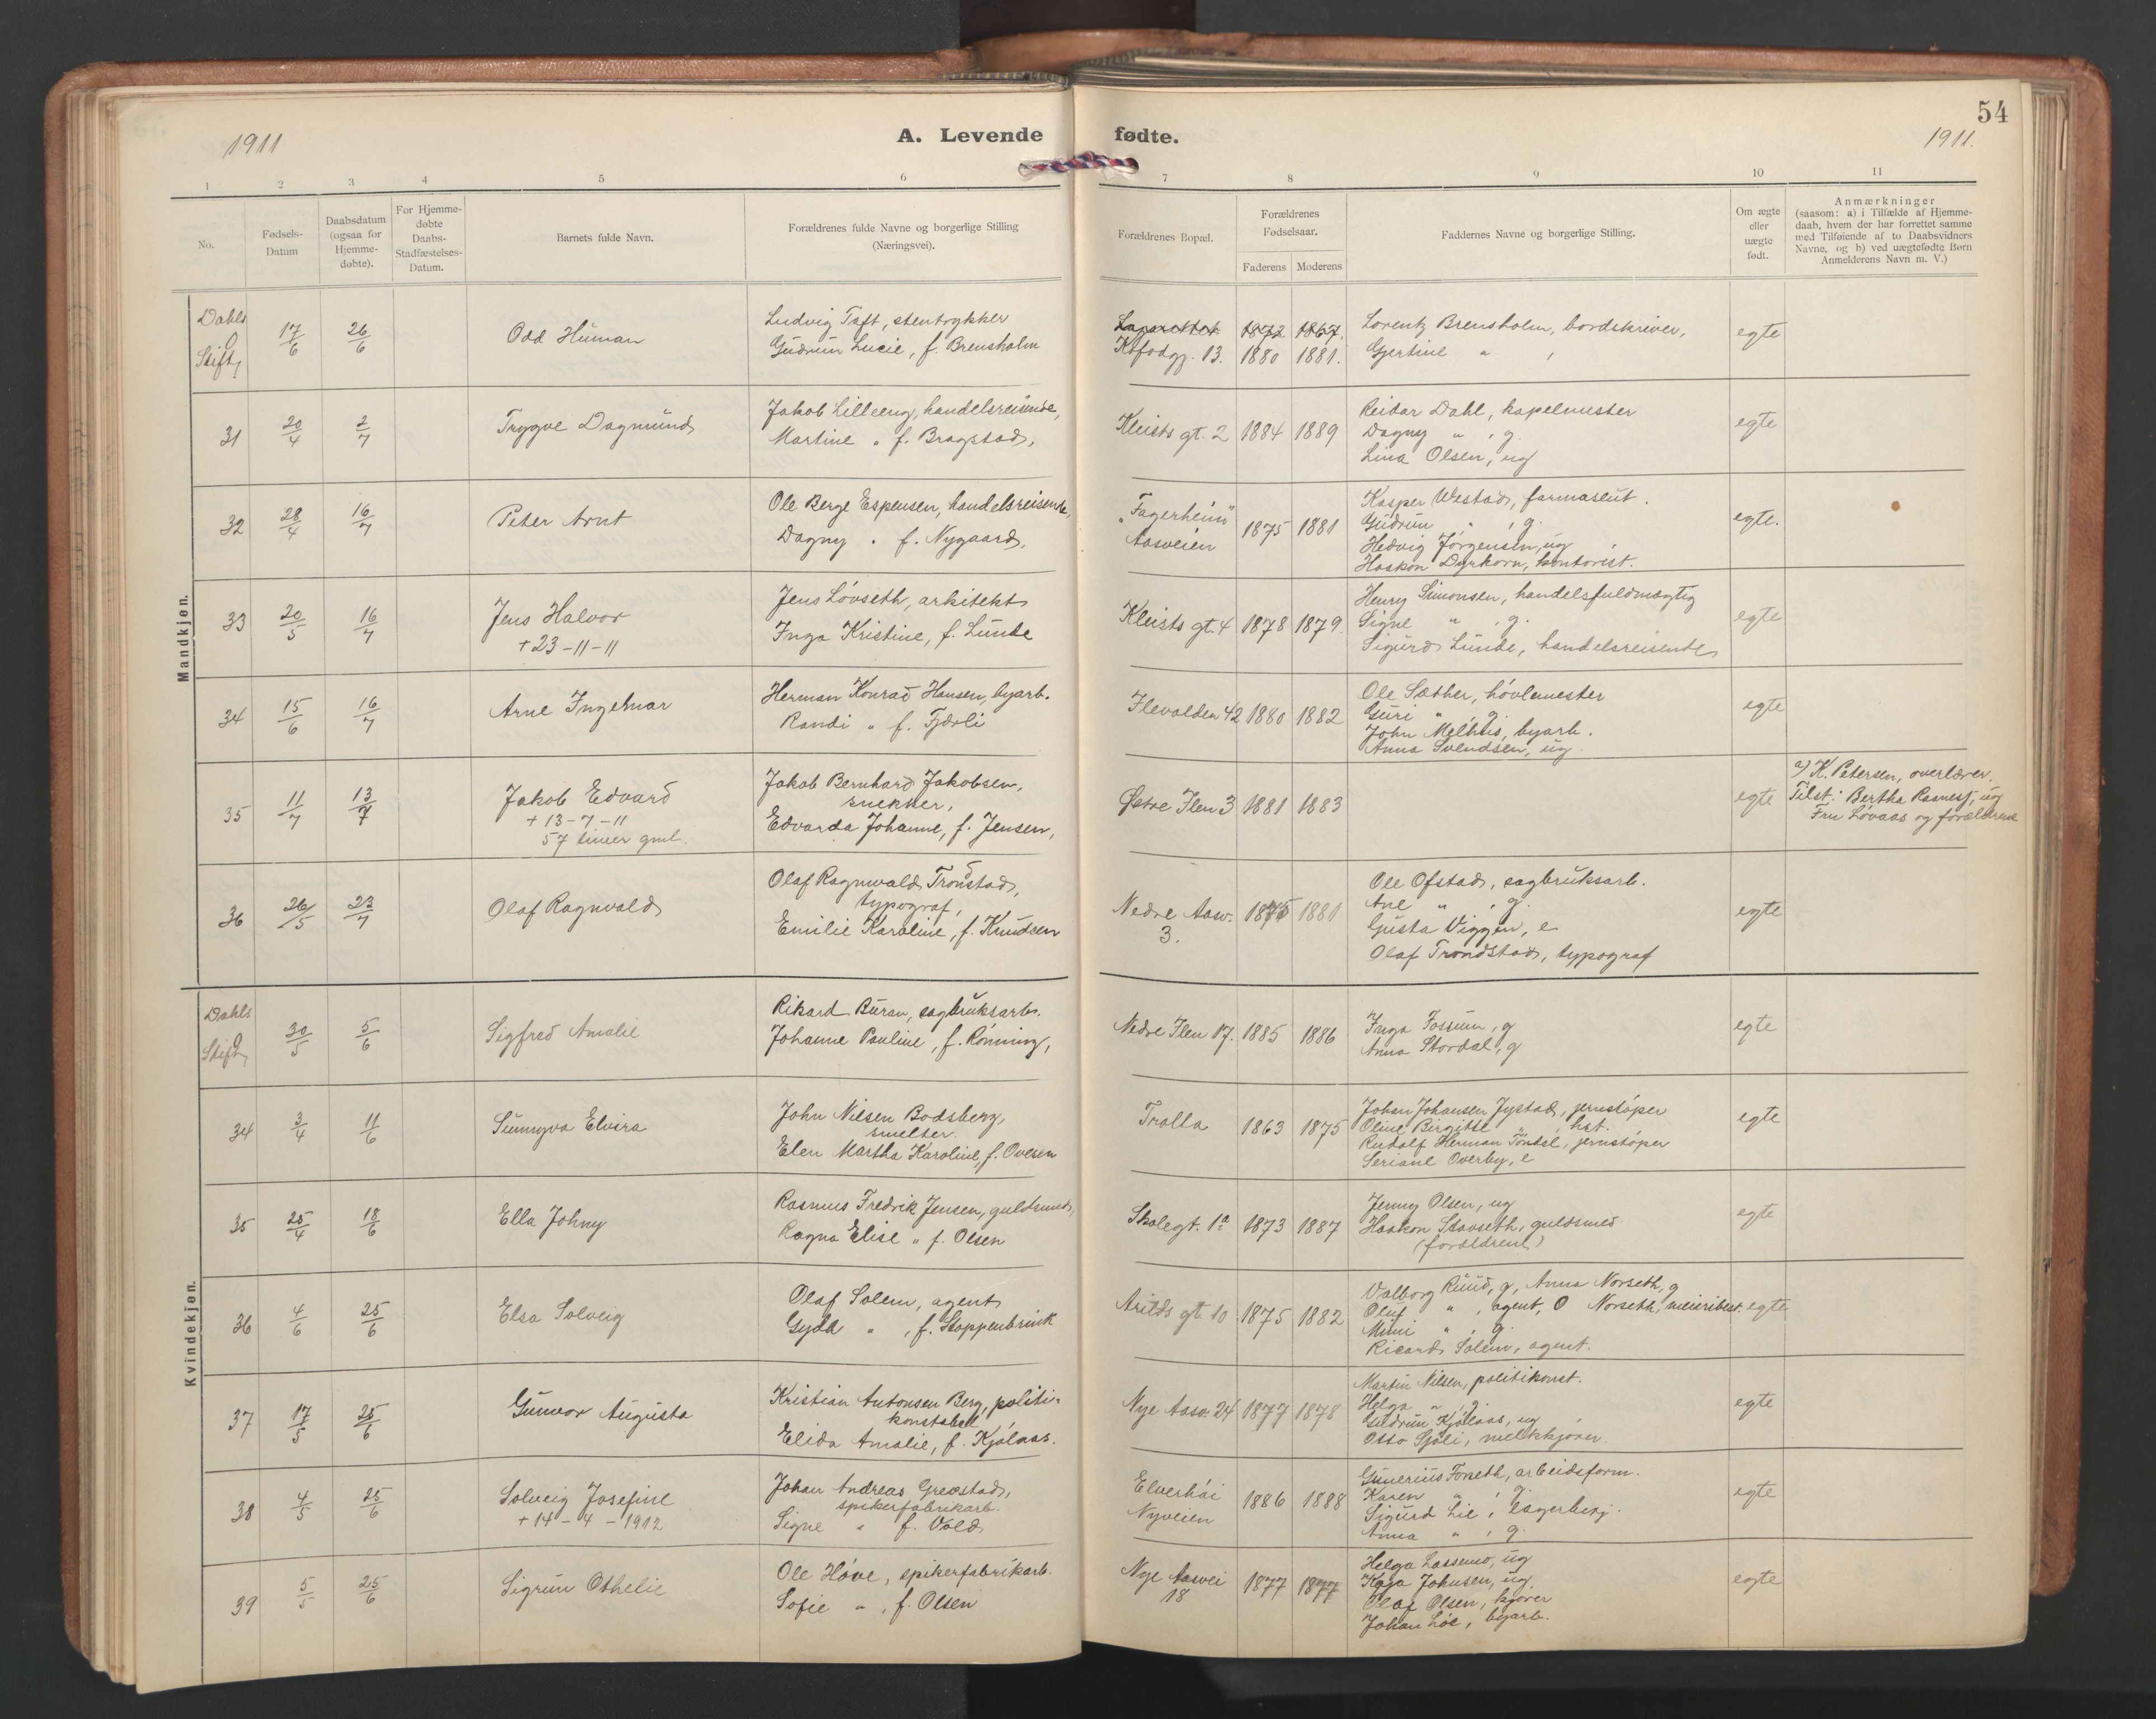 54
1911
A. Levende fødte.
1911.
1 2 3 4 5 6 7 8 9 10 11
No.
Fødsels-
Datum
Daabsdatum
(ogsaa for
Hjemme-
døbte).
For Hjemme-
døbte
Daabs-
Stadfæstelses-
Datum.
Barnets fulde Navn.
Forældrenes fulde Navne og borgerlige Stilling
(Næringsvei).
Forældrenes Bopæl.
Forældrenes
Fødselsaar.
Faderens Moderens
Faddernes Navne og borgerlige Stilling.
Om ægte
eller
uægte
født.
Anmærkninger
(saasom: a) i Tilfælde af Hjemme-
daab, hvem der har forrettet samme
med Tilføiende af to Daabsvidners
Navne, og b) ved uægtefødte Børn
Anmelderens Navn m. V.)
Mandkjøn.
Dahls
Stift,
17/6
26/6
Odd Human
Ludvig Taft, stentrykker
Gudrun Lucie, f. Brensholm
Lazarettet. 1872 1867.
Kofodgj. 13. 1880 1881.
Lorentz Brensholm, bordskriver,
Gjertine " ,
egte
31
20/4
2/7
Trygve Dagmund
Jakob Lilleeng, handelsreisende,
Martine " f. Bragstad,
Kleists gt. 2 1884 1889
Reidar Dahl, kapelmester
Dagny " , g.
Lina Olsen, ug
egte
32
28/4
16/7
Peter Arnt
Ole Berge Espensen, handelsreisende,
Dagny " f. Nygaard,
"Fagerheim"
Aasveien
1875 1881
Kasper Westad, farmaseut.
Gudrun " , g.
Hedvig Jørgensen, ug
Haakon Dyrkorn, kontorist.
egte.
33
20/5
16/7
Jens Halvor
+ 23-11-11
Jens Løvseth, arkitekt
Inga Kristine, f. Lunde
Kleists gt. 4 1878 1879.
Henry Simonsen, handelsfuldmægtig
Signe " , g.
Sigurd Lunde, handelsreisende
egte
34
15/6
16/7
Arne Ingelmar
Herman Konrad Hansen, byarb.
Randi " f. Fjærli
Ilevolden 42 1880 1882
Ole Sæther, høvlemester
Guri " , g.
John Melhus, byarb.
Anna Svendsen, ug.
egte
35
11/7
13/7
Jakob Edvard
+ 13-7-11
57 timer gml.
Jakob Bernhard Jakobsen,
snekker,
Edvarda Johanne, f. Jensen,
Østre Ilen 3 1881 1883
egte
a) K. Petersen, overlærer.
Tilst.: Bertha Rasnes, ug
Fru Løvaas og forældrene
36
26/5
23/7
Olaf Ragnvald
Olaf Ragnvald Tronstad,
typograf,
Emilie Karoline, f. Knudsen
Nedre Aasv.
3.
1875 1881
Ole Ofstad, sagbruksarb.
Ane " , g.
Gusta Viggen, e
Olaf Trondstad, typograf
egte
Kvindekjøn.
Dahls
Stift,
30/5
5/6
Sigfred Amalie
Rikard Buran, sagbruksarb.
Johanne Pauline, f. Rønning,
Nedre Ilen 17. 1885 1886
Inga Fossum, g
Anna Stordal, g
egte
34
3/4
11/6
Sunnyva Elvira
John Nilsen Bodsberg,
smelter.
Elen Martha Karoline, f. Ovesen
Trolla 1863 1875
Johan Johansen Jystad, jernstøper
Oline Birgitte " , hst.
Rudolf Herman Tøndel, jernstøper
Seriane Overby, e
egte
35
25/4
18/6
Ella Johny
Rasmus Fredrik Jensen, guldsmed,
Ragna Elise " f. Olsen
Skolegt. 1a 1873 1887
Jenny Olsen, ug
Haakon Stavseth, guldsmed
(forældrene)
egte
36
4/6
25/6
Elsa Solveig
Olaf Solem, agent
Gyda " , f. Stoppenbrink
Arilds gt. 10 1875 1882
Valborg Ruud, g, Anna Norseth, g
Oluf " , agent, O Norseth, meieribest.
Mimi " , g.
Ricard Solem, agent.
egte
37
17/5
25/6
Gunvor Augusta
Kristian Antonsen Berg, politi-
konstabel
Elida Amalie, f. Kjølaas.
Nye Aasv. 24 1877 1878
Martin Nilsen, politikonst.
Helga " , g.
Guldrun Kjølaas, ug
Otto Sjøli, melkkjører.
egte
38
4/5
25/6
Solveig Josefine
+ 14-4-1912
Johan Andreas Grevstad,
spikerfabrikarb.
Signe " f. Vold,
Elverhøi
Nyveien
1886 1888
Gunerius Forseth, arbeidsform.
Karen " , g.
Sigurd Lie, lagerbetj.
Anna " , g.
egte
39
5/5
25/6
Sigrun Othelie
Ole Høve, spikerfabrikarb.
Sofie " , f. Olsen
Nye Aasvei
18
1877 1877
Helga Lassemo, ug
Kaja Johnsen, ug.
Olaf Olsen, kjører
Johan Løe, byarb.
egte